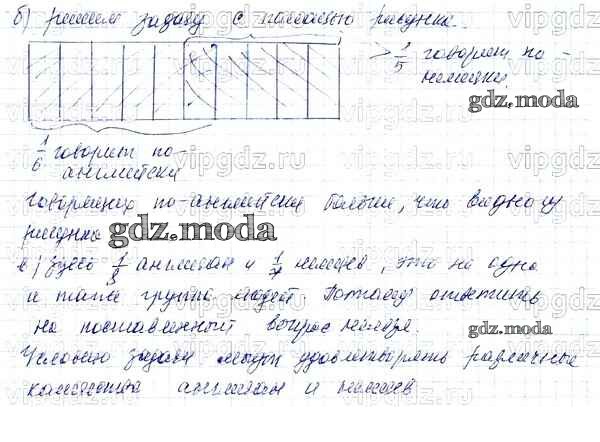 б) решим задачу с помощью рисунка.
> 1/5 говорят по-
немецки
gdz.moda
1/6 говорят по-
английски
говорящих по-английски больше, чем видно из
рисунка
gdz.moda
в) Будео 1/8 англичан и 1/7 немцев, это не одна
и та же группа людей Поэтому ответить
на поставленный вопрос нельзя.
gdz.moda
Условию задачи могут удовлетворять различные
количества англичан и немцев
vipgdz.ru